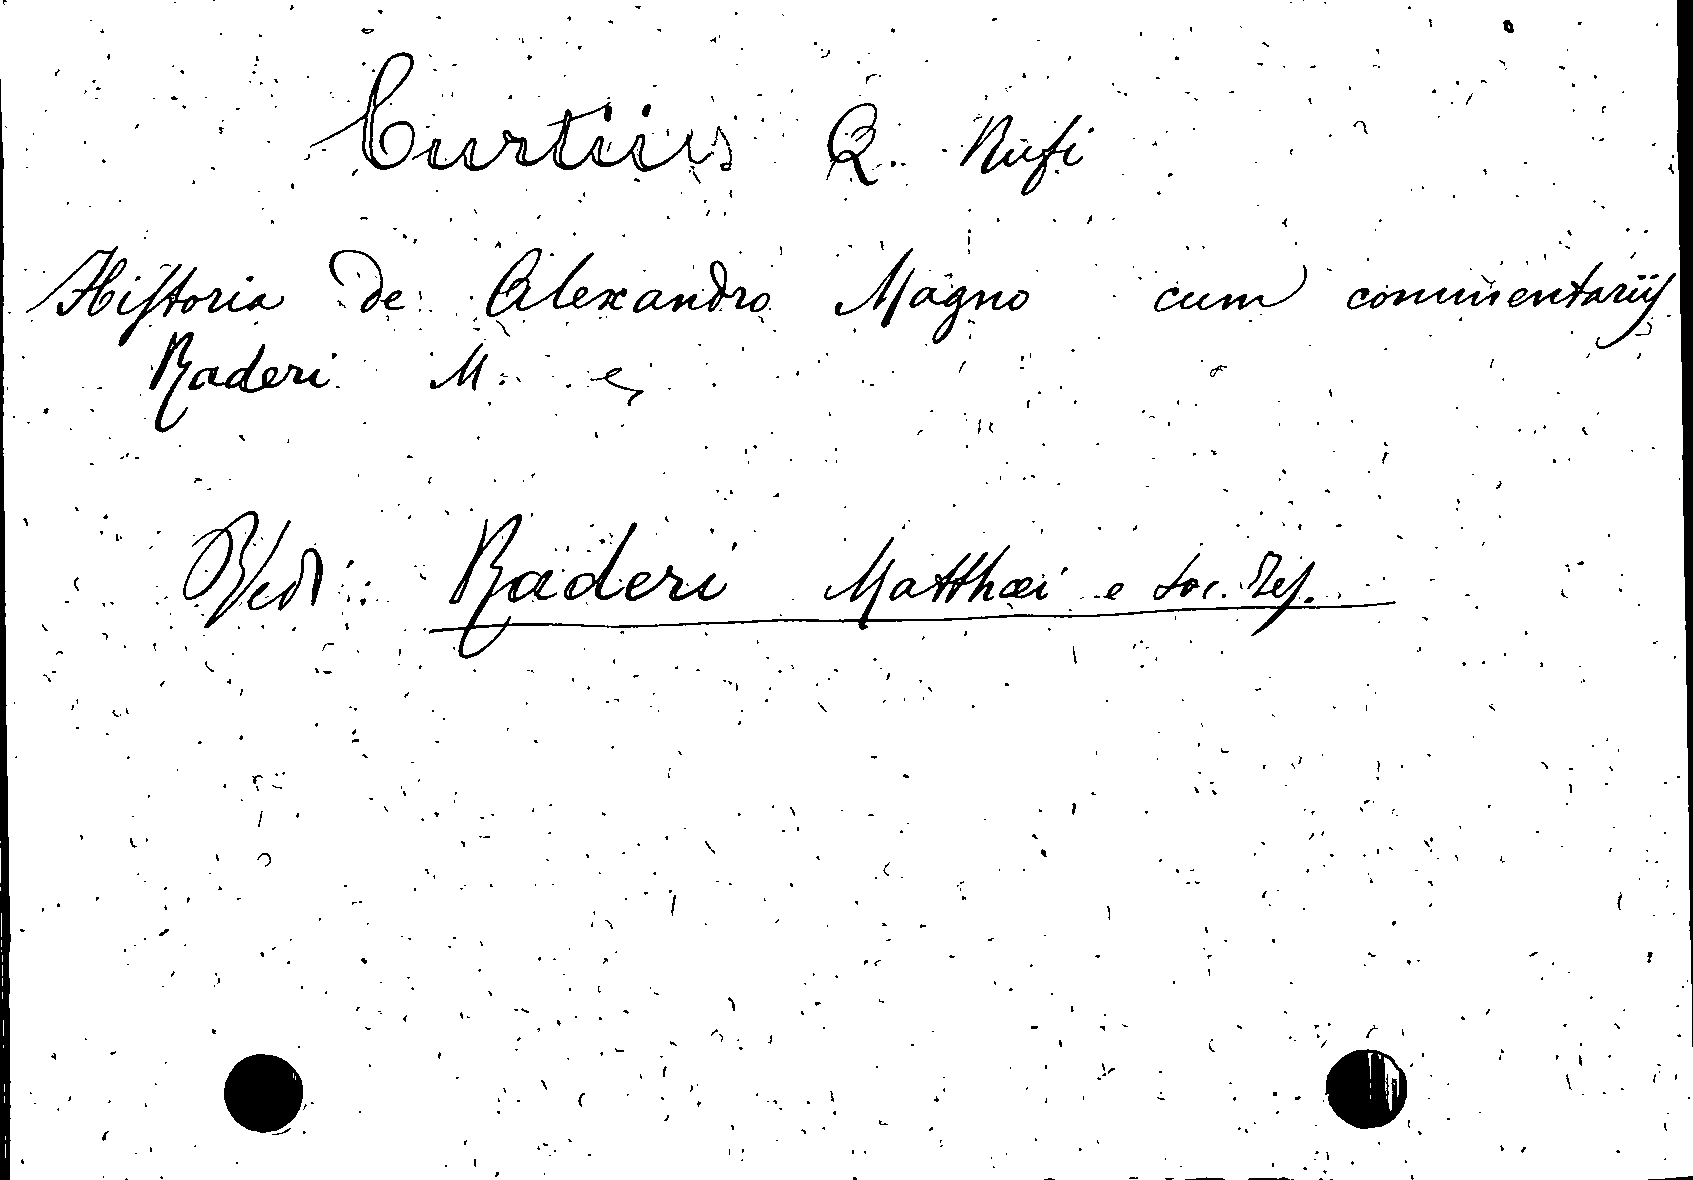 Curtius Q. Rufi
Historia de Alexandro Magno cum commentarijs
Raderi M.
Vedi: Raderi Matthæi e Soc. Jes.